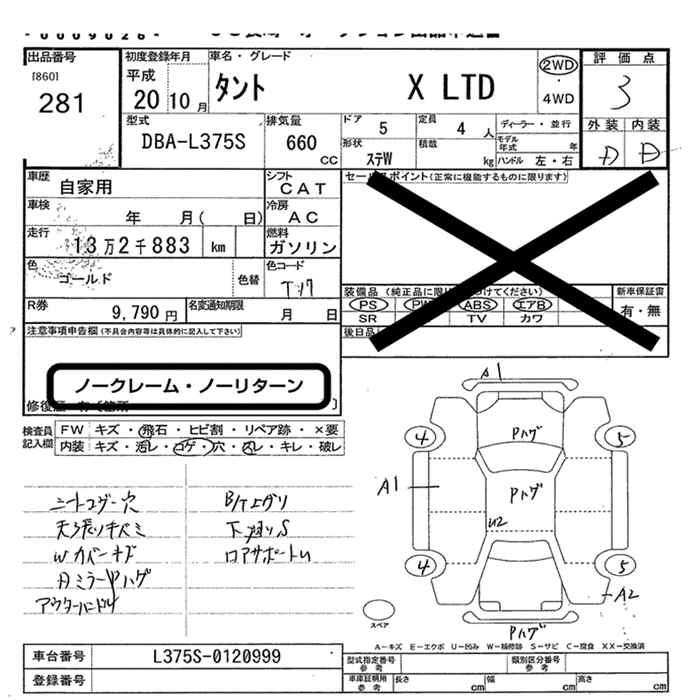 出品番号
[860]
281
初度登録年月
平成
20 10 月
車名・グレード
タント X LTD
2WD
・
4WD
評価点
3
外装 内装
型式
DBA-L375S
排気量
660
CC
ドア
5
定員
4 人
ディーラー・並行
モデル
年式 年
形状
ステW
積載
kg
ハンドル 左・右
車歴
自家用
シフト
CAT
車検
年 月( 日)
冷房
AC
走行
13万2千883 km
燃料
ガソリン
色
ゴールド
色替
色コード
T17
R券
9,790 円
名変通知期限
月 日
セールスポイント(正常に機能するものに限ります)
装備品
PS PW ABS エアB
SR TV カワ
新車保証書
有・無
後日品
注意事項申告欄(不具合内容等は具体的に記入して下さい)
ノークレーム・ノーリターン
検査員
記入欄
FW キズ・飛石・ヒビ割・リペア跡・×要
内装 キズ・汚レ・コゲ・穴・スレ・キレ・破レ
シートコゲ穴
天張リキバミ
Wカバーキズ
Aミラーハゲ
アウターハンドル
B/Tエグリ
下廻りS
ロアサポートU
A1
Pハゲ
4
5
A1
Pハゲ
U2
4
5
A2
Pハゲ
スペア
A－キズ E－エクボ U－凹み W－補修跡 S－サビ C－腐食 XX－交換済
車台番号
L375S-0120999
登録番号
型式指定番号
参考
類別区分番号
参考
車庫証明用
参考
長さ cm
幅 cm
高さ cm